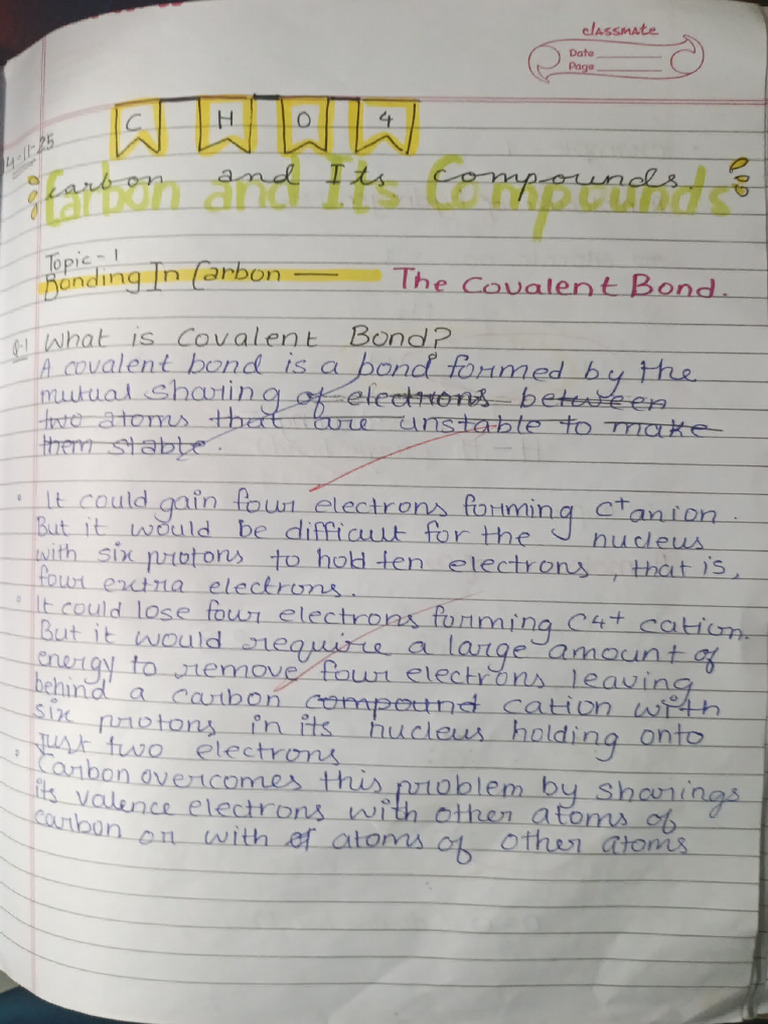 classmate
Date
Page
C H O 4
4-11-25
Carbon and Its Compounds
Carbon and Its Compounds.
Topic-1
Bonding In Carbon — The Covalent Bond.
Q.1 What is Covalent Bond?
A covalent bond is a bond formed by the
mutual sharing of electrons between
two atoms that are unstable to make
them stable.
• It could gain four electrons forming C+ anion.
But it would be difficult for the nucleus
with six protons to hold ten electrons, that is,
four extra electrons.
• It could lose four electrons forming C4+ cation.
But it would require a large amount of
energy to remove four electrons leaving
behind a carbon compound cation with
six protons in its nucleus holding onto
just two electrons
• Carbon overcomes this problem by sharings
its valence electrons with other atoms of
carbon or with of atoms of other atoms